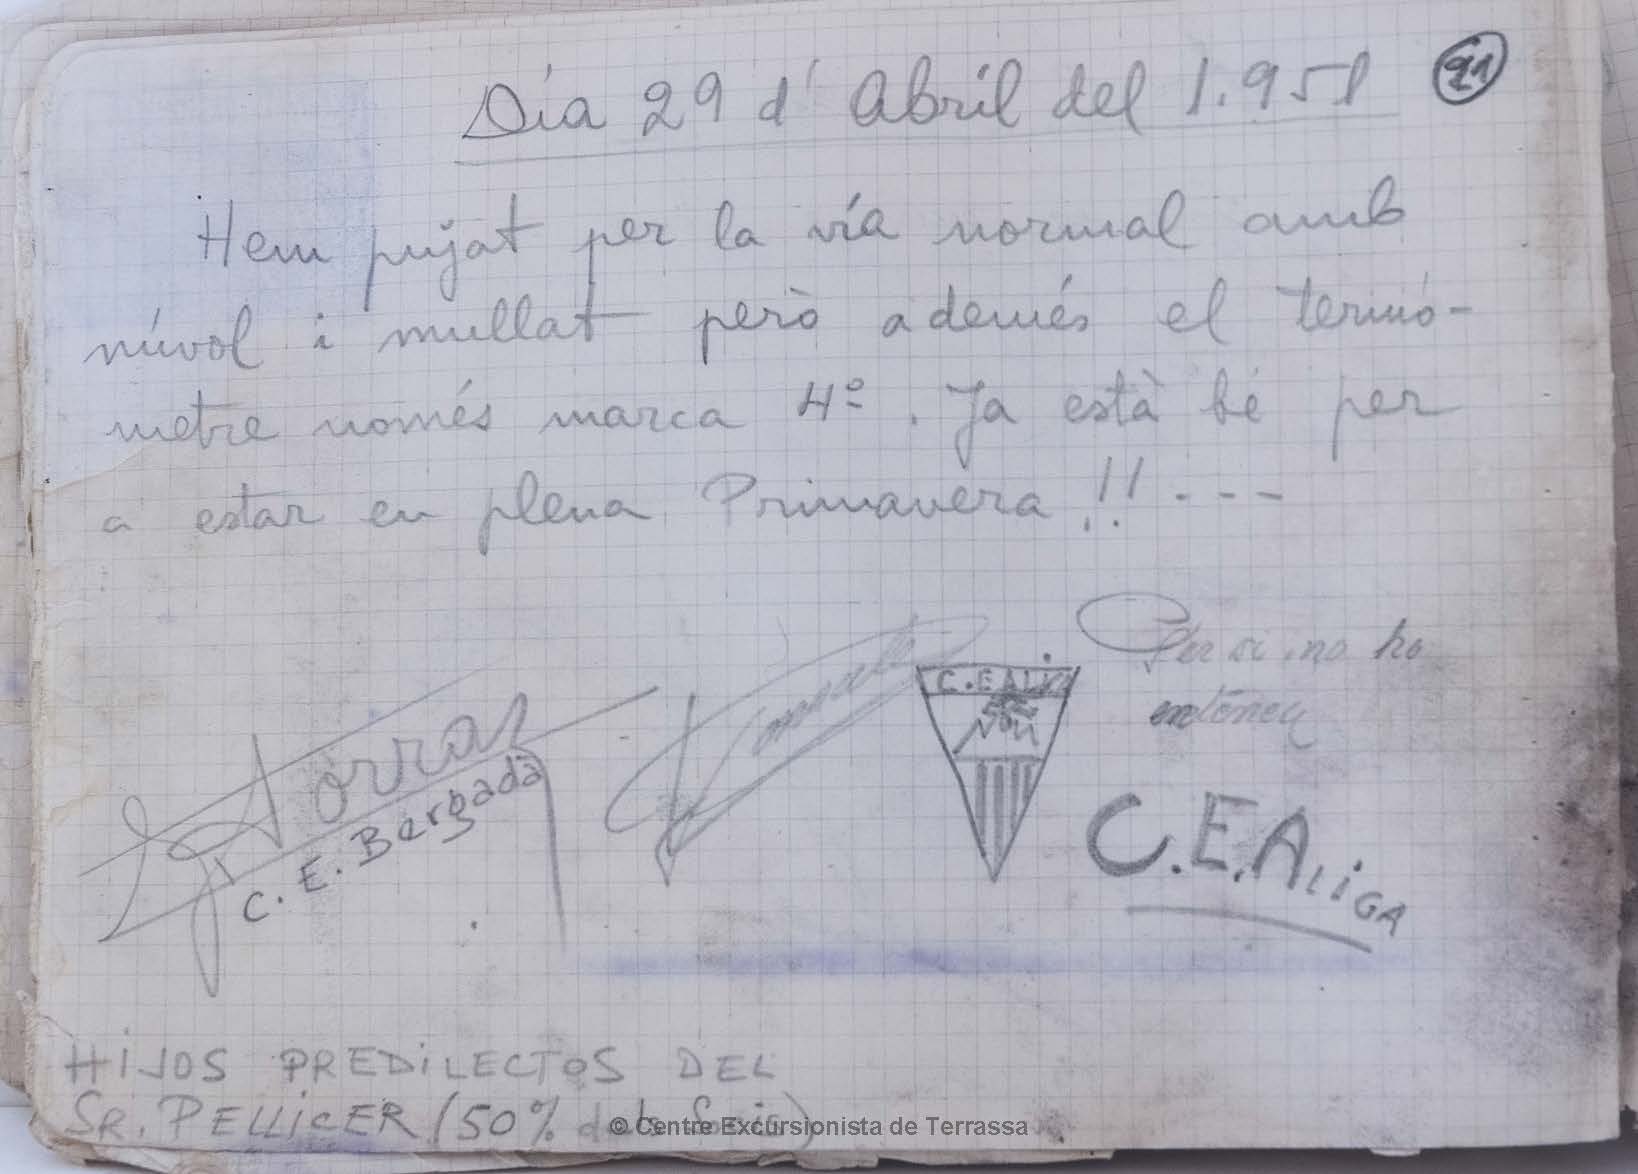 Día 29 d' Abril del 1.951
21
Hem pujat per la vía normal amb
núvol i mullat però ademés el termó-
metre només marca 4º. Ja està bé per
a estar en plena Primavera!!---
Torras
C.E. Bergadà
C.E.ALI
Per si no ho
C.E.ALiGA
HiJOS PREDiLECTOS DEL
SR. PELLiCER (50% dels Socis)
© Centre Excursionista de Terrassa